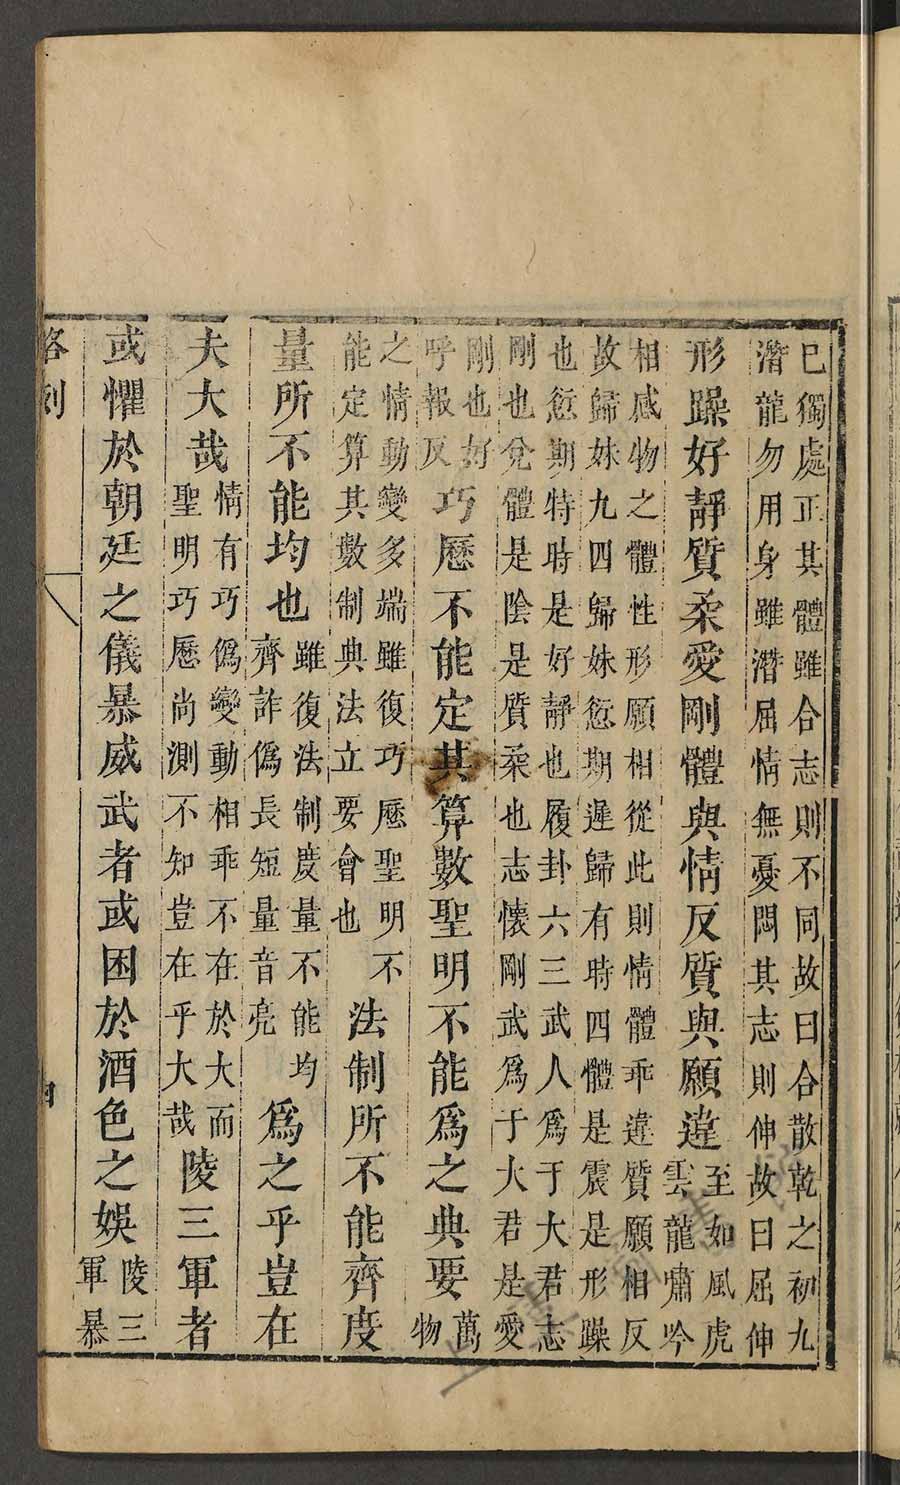 已獨處正其體雖合志則不同故曰合散乾之初九
潛龍勿用身雖潛屈情無憂悶其志則伸故曰屈伸
形躁好靜質柔愛剛體與情反質與願違
至如風虎
雲龍嘯吟
相感物之體性形願相從此則情體乖違質願相反
故歸妹九四歸妹愆期遲歸有時四體是震是形躁
也愆期特時是好靜也履卦六三武人爲于大君志
剛也兌體是陰是質柔也志懷剛武爲于大君是愛
剛也好
呼報反
巧歷不能定其算數聖明不能爲之典要
萬
物
之情動變多端雖復巧歷聖明不
能定算其數制典法立要會也
法制所不能齊度
量所不能均也
雖復法制度量不能均
齊詐僞長短量音亮
爲之乎豈在
夫大哉
情有巧僞變動相乖不在於大而
聖明巧歷尚測不知豈在乎大哉
陵三軍者
或懼於朝廷之儀暴威武者或困於酒色之娛
陵三
軍暴